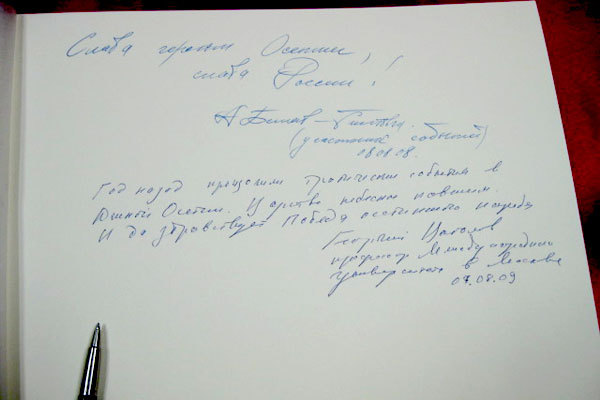 Слава героям Осетии,
слава России!
(участник событий)
08.08.08.
Год назад произошли трагические события в
Южной Осетии. Царство небесное павшим.
И да здравствует Победа осетинского народа
Георгий Цаголов
профессор Международного
университета в Москве
07.08.09